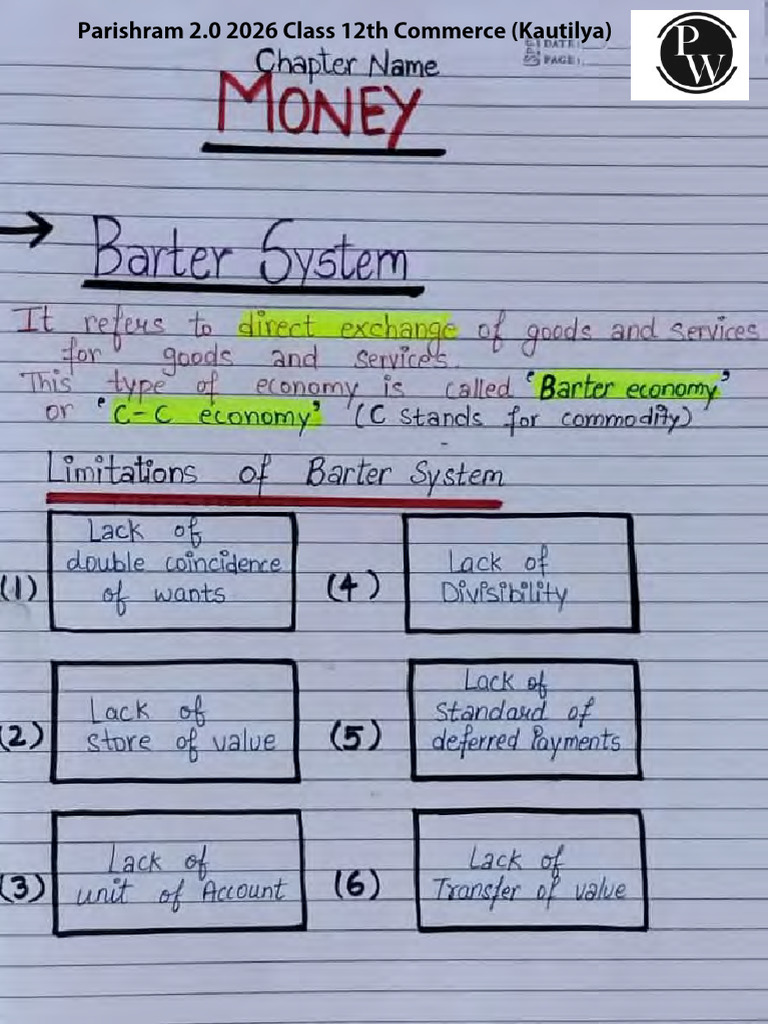 Parishram 2.0 2026 Class 12th Commerce (Kautilya)
DATE:
PAGE:
PW
Chapter Name
MONEY
Barter System
It refers to direct exchange of goods and services
for goods and services.
This type of economy is called 'Barter economy'
or 'C-C economy' (C stands for commodity)
Limitations of Barter System
(1) Lack of
double coincidence
of wants
(4) Lack of
Divisibility
(2) Lack of
store of value
(5) Lack of
standard of
deferred Payments
(3) Lack of
unit of Account
(6) Lack of
Transfer of value